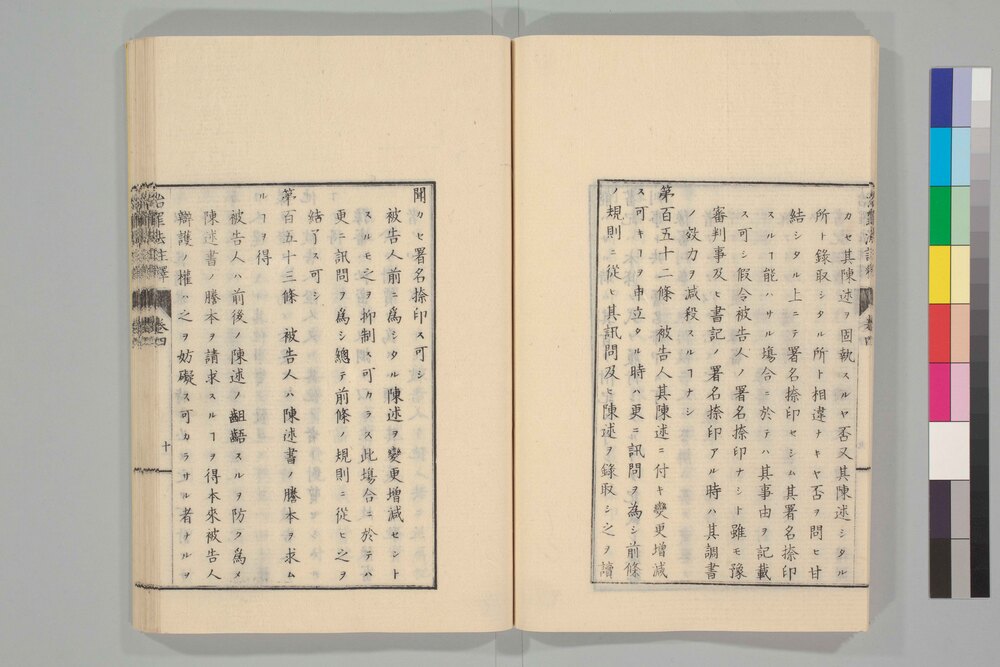 カセ其陳述ヲ固執スルヤ否又其陳述シタル
所ト錄取シタル所ト相違ナキヤ否ヲ問ヒ甘
結シタル上ニテ署名捺印セシム其署名捺印
スルヿ能ハサル塲合ニ於テハ其事由ヲ記載
ス可シ假令被告人ノ署名捺印ナシト雖モ豫
審判事及ヒ書記ノ署名捺印アル時ハ其調書
ノ效力ヲ減殺スルヿナシ
第百五十二條 被告人其陳述ニ付キ變更增減
ス可キヿヲ申立タル時ハ更ニ訊問ヲ為シ前條
ノ規則ニ從ヒ其訊問及ヒ陳述ヲ錄取シ之ヲ讀
聞カセ署名捺印ス可シ
被告人前ニ爲シタル陳述ヲ變更增減セント
スルモ之ヲ抑制ス可カラス此塲合ニ於テハ
更ニ訊問ヲ爲シ總テ前條ノ規則ニ從ヒ之ヲ
結了ス可シ
第百五十三條 被告人ハ陳述書ノ謄本ヲ求ム
ルヿヲ得
被告人ハ前後ノ陳述ノ齟齬スルヲ防ク爲メ
陳述書ノ謄本ヲ請求スルヿヲ得本來被告人
辯護ノ權ハ之ヲ妨礙ス可カラサル者ナルヲ
治罪法註釋 卷四
十